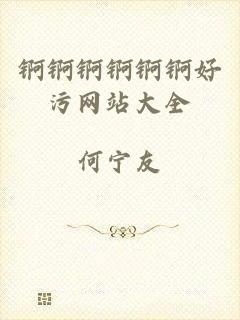 锕锕锕锕锕锕好
污网站大全
何宁友